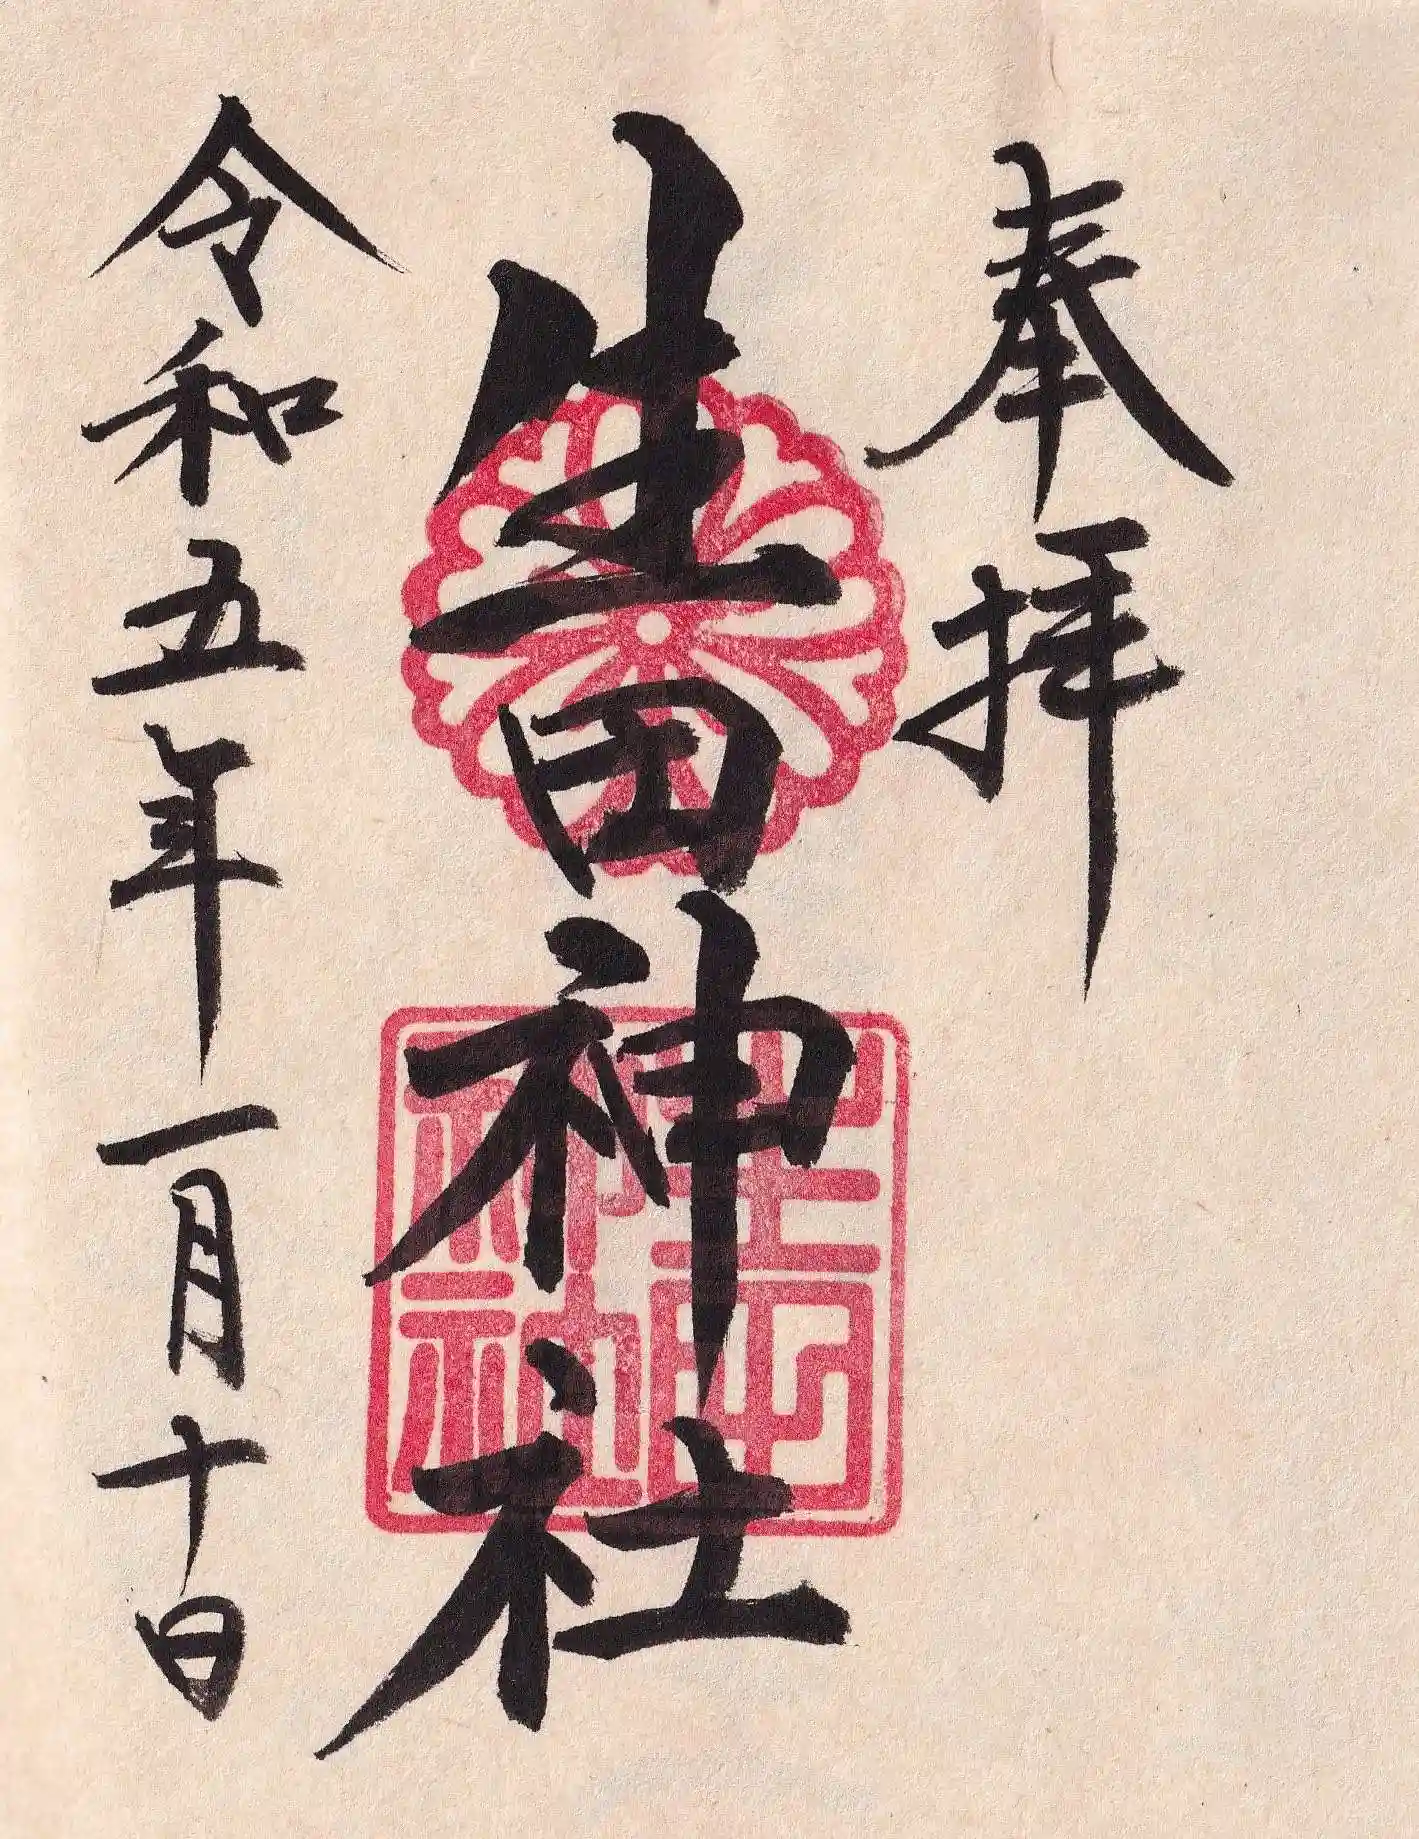 奉拝
生田神社
生田神社
令和五年一月十日